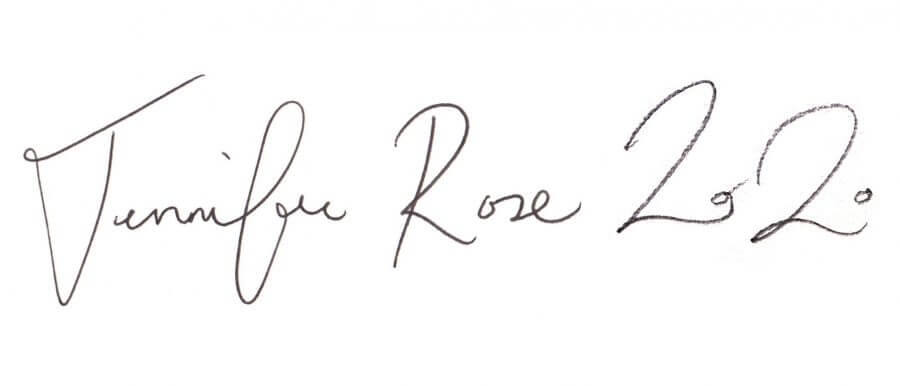 Jennifer Rose 2020